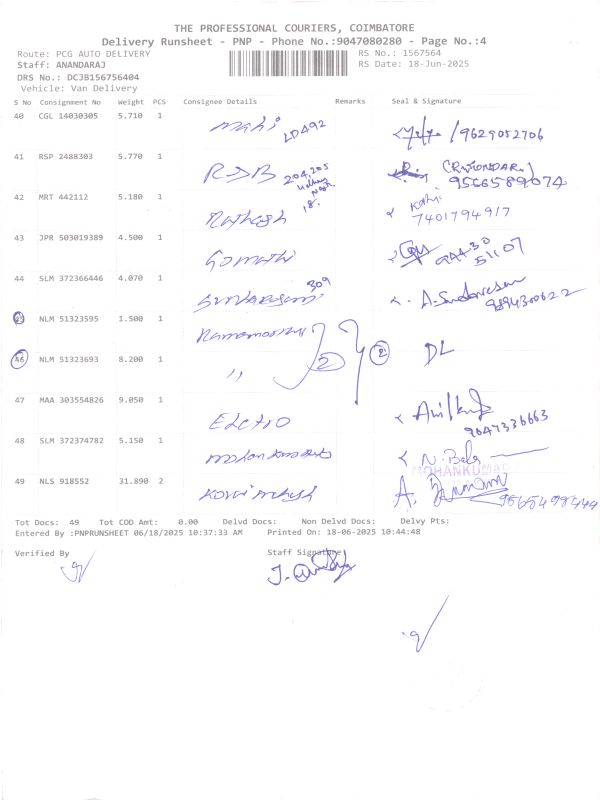 THE PROFESSIONAL COURIERS, COIMBATORE
Delivery Runsheet - PNP - Phone No.:9047080280 - Page No.:4
Route: PCG AUTO DELIVERY RS No.: 1567564
Staff: ANANDARAJ RS Date: 18-Jun-2025
DRS No.: DCJB156756404
Vehicle: Van Delivery
S No Consignment No Weight PCS Consignee Details Remarks Seal & Signature
40 CGL 14030305 5.710 1 Mahi LD492 9629052706
41 RSP 2488303 5.770 1 RSB 204,205 9566589074
42 MRT 442112 5.180 1 Rathesh 18. 7401794917
43 JPR 503019389 4.500 1 Gomathi 94430 51107
44 SLM 372366446 4.070 1 309 A. Sundaresan 9894300622
45 NLM 51323595 1.500 1
46 NLM 51323693 8.200 1 " 2 2 DL
47 MAA 303554826 9.050 1 Electro Anilkumar 9047336663
48 SLM 372374782 5.150 1 Mohankumar N. Bala
MOHANKUMAR
49 NLS 918552 31.890 2 A. 9565498444
Tot Docs: 49 Tot COD Amt: 0.00 Delvd Docs: Non Delvd Docs: Delvy Pts:
Entered By :PNPRUNSHEET 06/18/2025 10:37:33 AM Printed On: 18-06-2025 10:44:48
Verified By Staff Signature